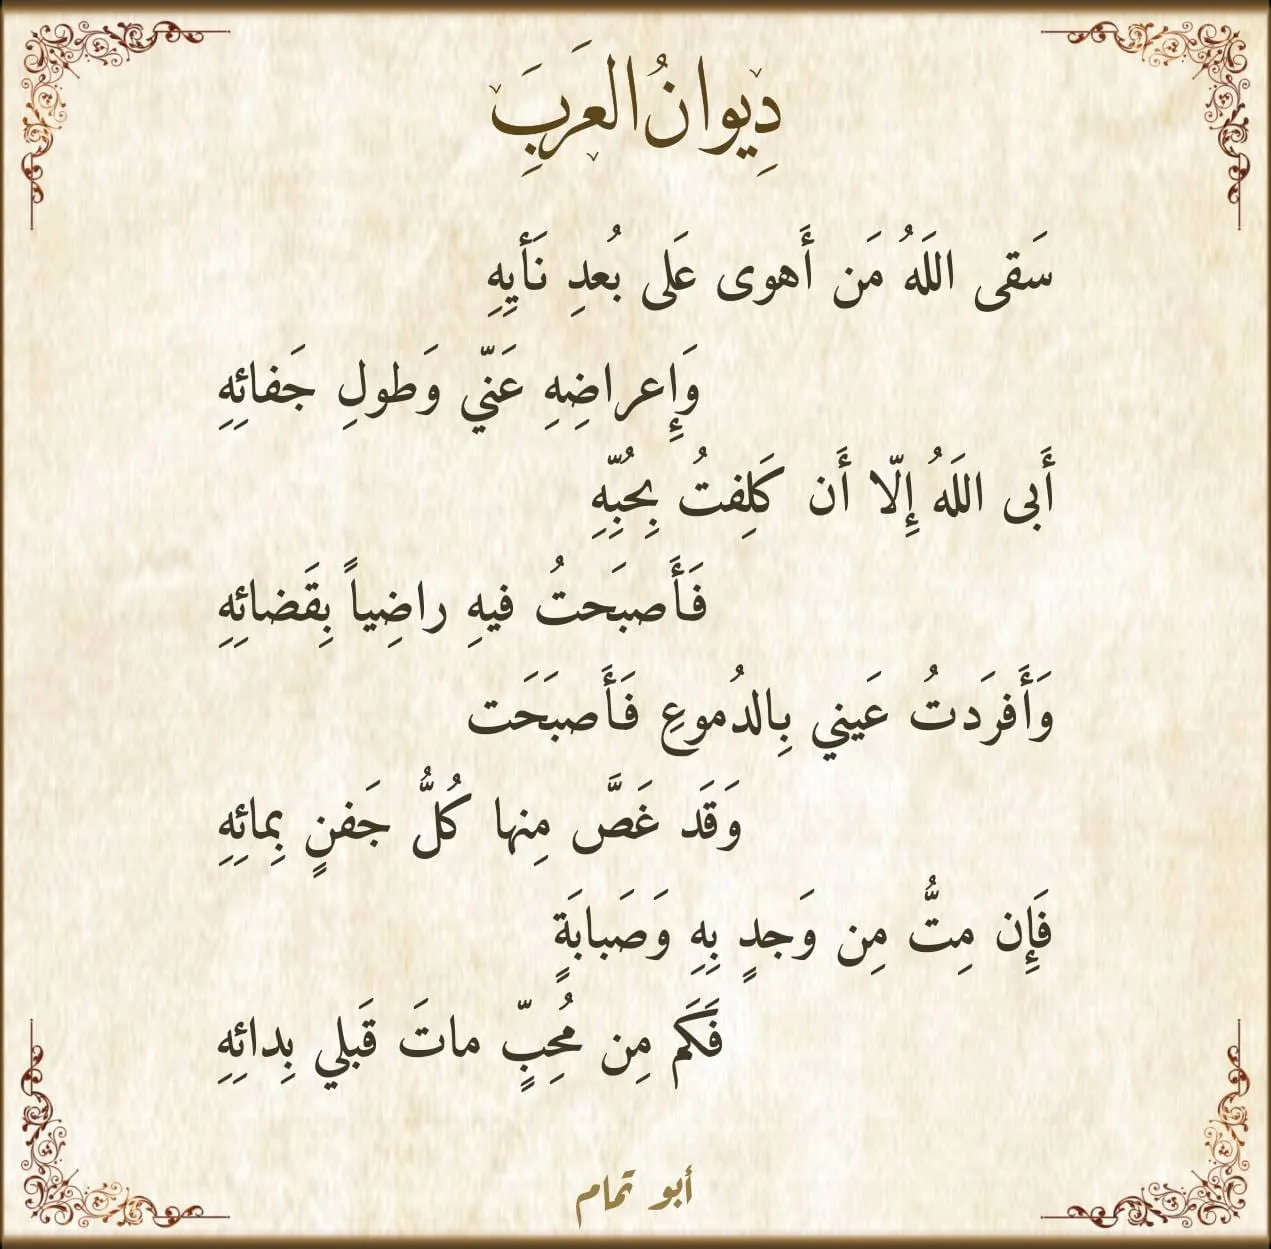 دِيوانُ العَرَبِ
سَقى اللَهُ مَن أَهوى عَلى بُعدِ نَأيِهِ
وَإِعراضِهِ عَنّي وَطولِ جَفائِهِ
أَبى اللَهُ إِلّا أَن كَلِفتُ بِحُبِّهِ
فَأَصبَحتُ فيهِ راضِياً بِقَضائِهِ
وَأَفرَدتُ عَيني بِالدُموعِ فَأَصبَحَت
وَقَد غَصَّ مِنها كُلُّ جَفنٍ بِمائِهِ
فَإِن مِتُّ مِن وَجدٍ بِهِ وَصَبابَةٍ
فَكَم مِن مُحِبٍّ ماتَ قَبلي بِدائِهِ
أبو تمام